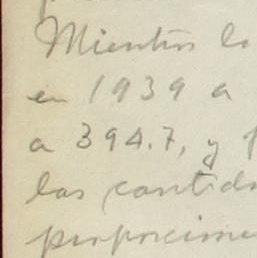 Mientras lo
en 1939 a
a 394.7, y
las cantida
proporcione